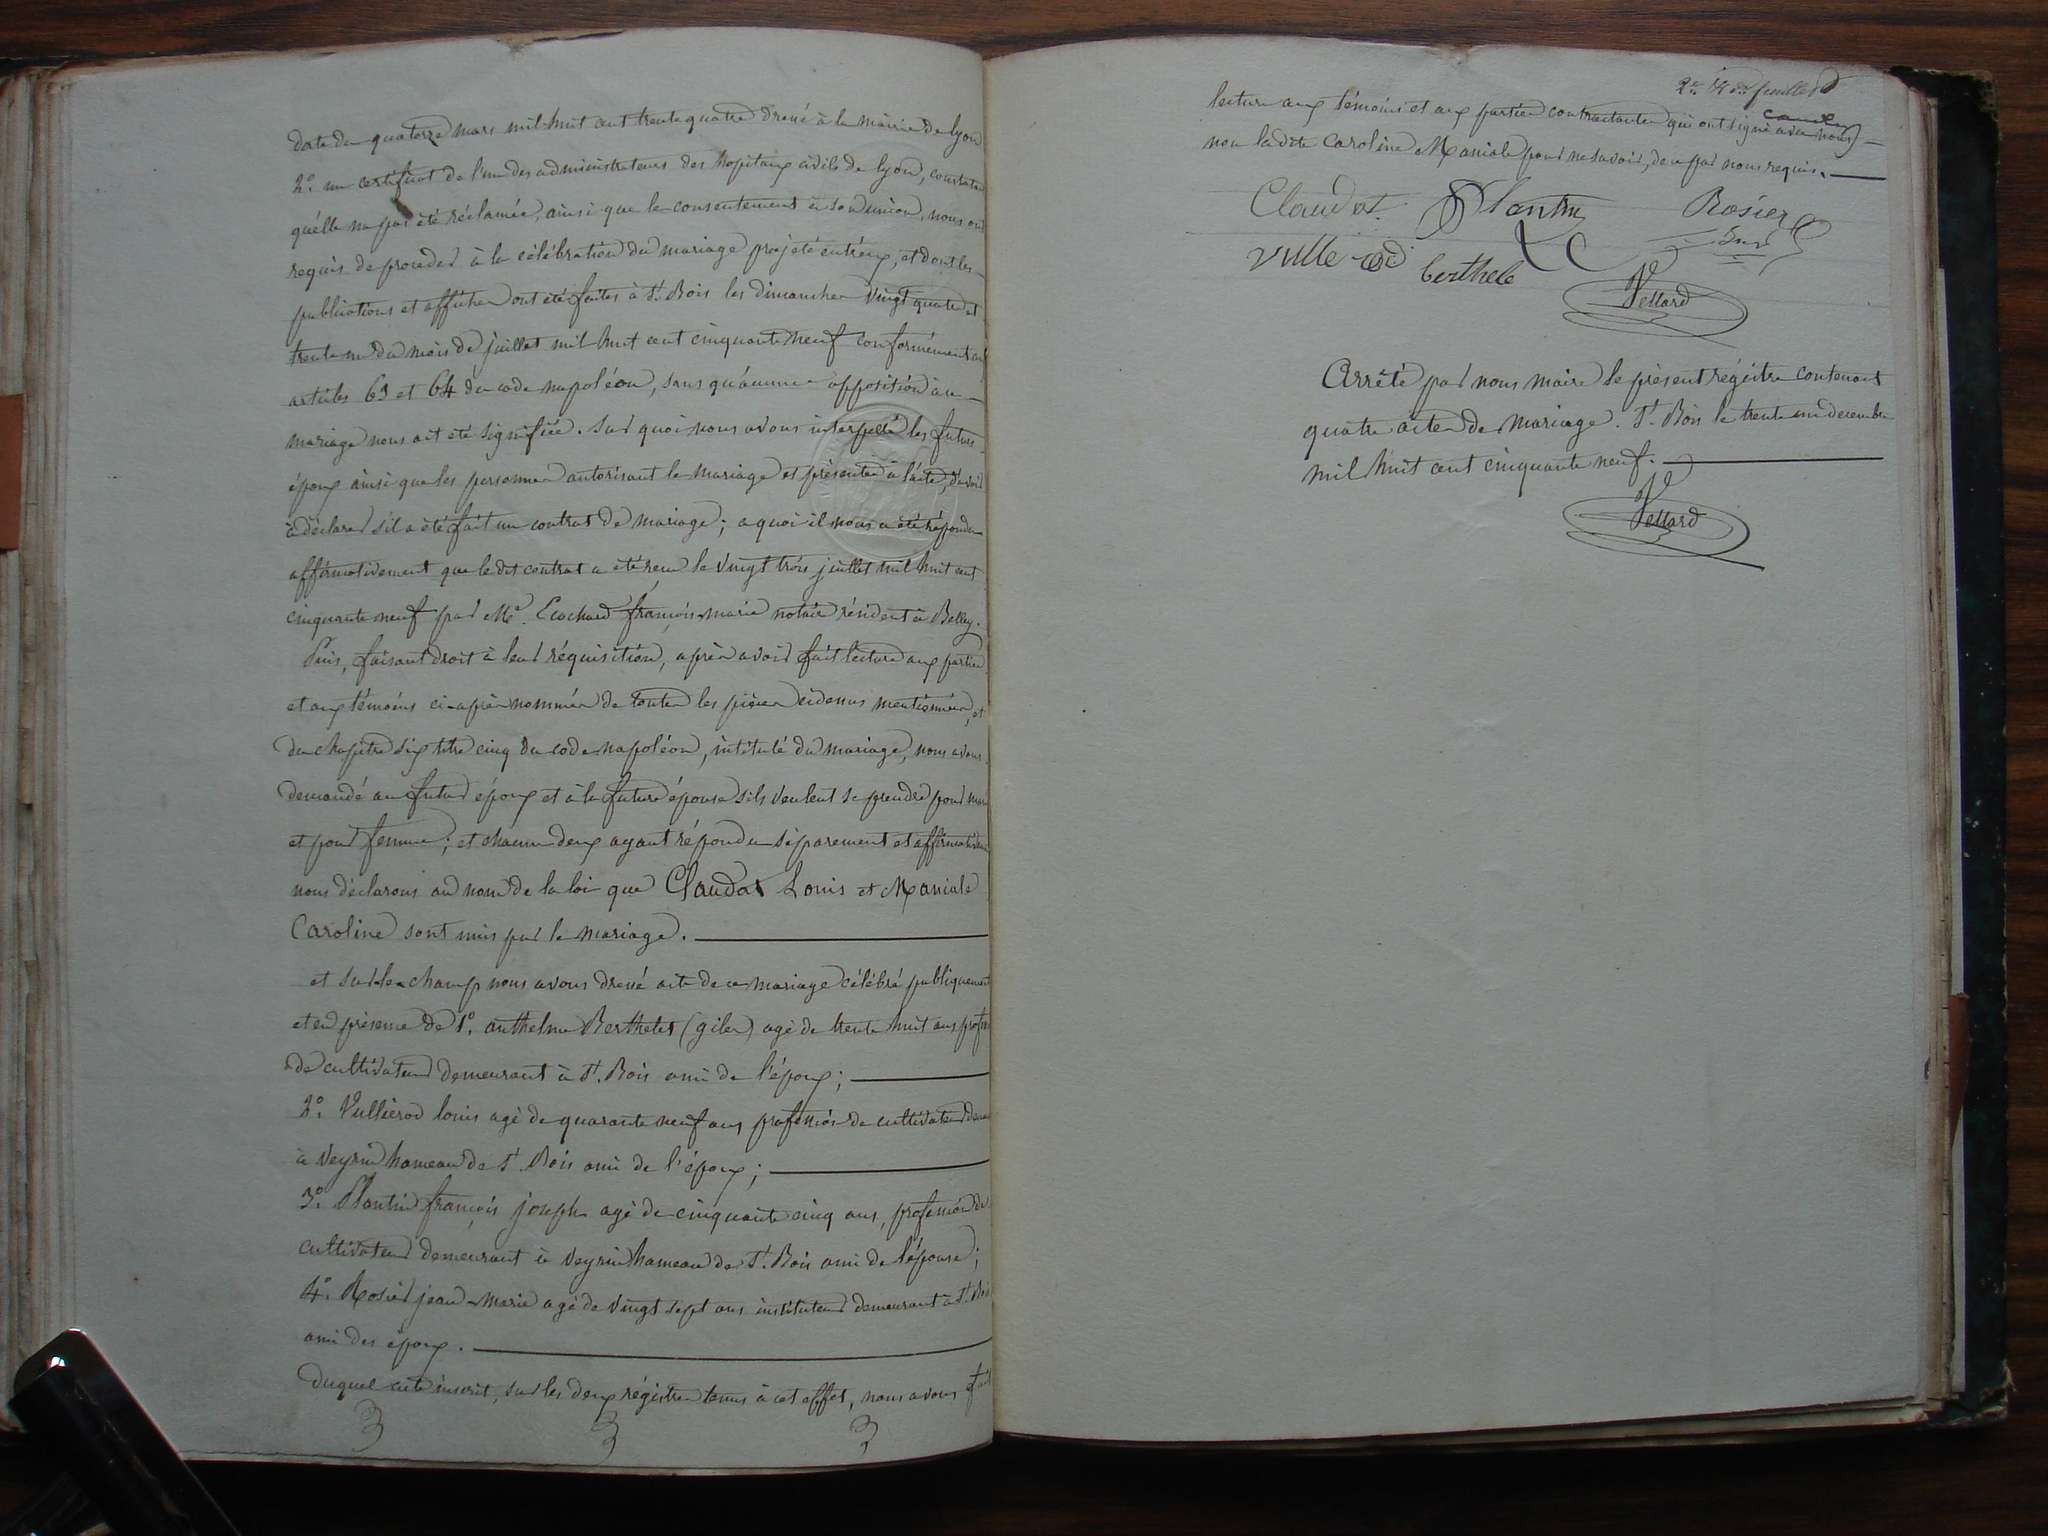 date du quatorze mars mil huit cent trente quatre dressé à la mairie de lyon
2º un certificat de l'un des administrateurs des hopitaux civils de lyon, constatant
quélle na pas été réclamée, ainsi que le consentement à son union, nous ont
requis de proceder à la célébration du mariage projeté entréux, et dont les
publications et affiches ont été faites à St. Bois les dimanches vingt quatre et
trente un du mois de juillet mil huit cent cinquante neuf conformément aux
articles 63 et 64 du code napoléon, sans qu'áucune opposition au
mariage nous ait été signifiée. Sur quoi nous avons interpellé les futurs
époux ainsi que les personnes autorisant le mariage et présentes à l'acte, d'avoir
à déclarer s'il a été fait un contrat de mariage; a quoi il nous a été répondu
affirmativement que le dit contrat a été recu le vingt trois juillet mil huit cent
cinquante neuf par Me. Ecochard françois-marie notaire résident à Belley.
Puis, faisant droit à leur réquisition, après avoir fait lecture aux parties
et aux témoins ci-après nommés de toutes les pièces cidessus mentionnées, et
du chapitre six titre cinq du code napoléon, intitulé du mariage, nous avons
demandé au futur époux et à la future épouse sils veulent se prendre pour mari
et pour femme; et chacun deux ayant répondu séparement et affirmativement
nous déclarons au nom de la loi que Claudat Louis et Maniale
Caroline sont unis par le mariage.
et sur-le-champ nous avons dressé acte de ce mariage célébré publiquement
et en présence de 1º. anthelme Berthelet (giles) agé de trente huit ans profession
de cultivateur demeurant à St. Bois ami de l'époux;
2º. Vullierod louis agé de quarante neuf ans profession de cultivateur demeurant
à Veyrin hameau de St Bois ami de l'époux;
3º. Plantin françois joseph agé de cinquante cinq ans, profession de
cultivateur demeurant à Veyrin hameau de St. Bois ami de l'épouse;
4º. Rosier jean-marie agé de vingt sept ans instituteur demeurant à St. Bois
ami des époux.
Duquel acte inscrit, sur les deux régistres tenus à cet effet, nous avons fait
2e. feuillet
lecture aux témoins et aux parties contractantes qui ont signé avec nous
non la dite Caroline Maniale pour ne savoir, de ce par nous requis.
Claudat Plantin Rosier
berthele
Tellard
Arrêté par nous maire le présent régistre contenant
quatre actes de mariage. St. Bois le trente un decembre
mil huit cent cinquante neuf.
Tellard